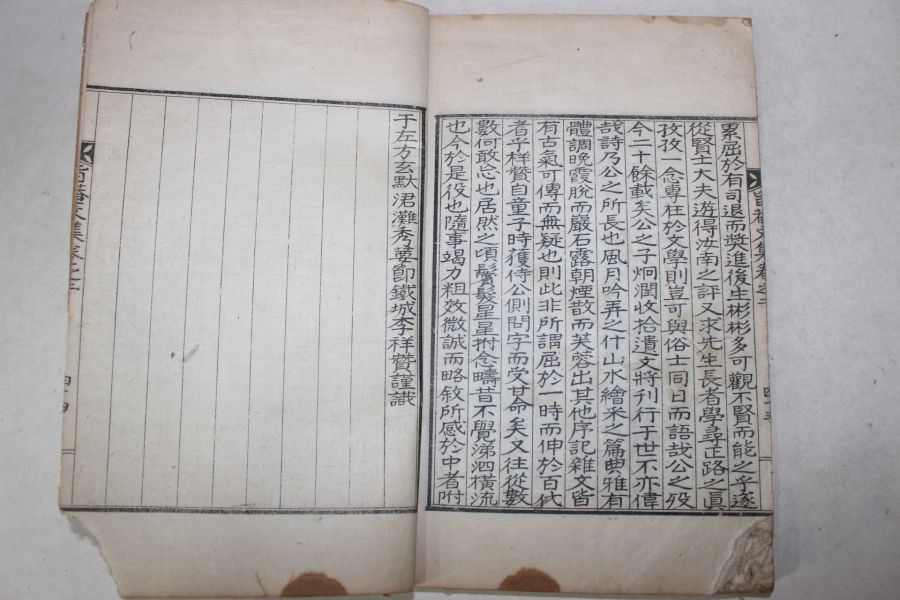 累屈於有司退而奬進後生彬彬多可觀不賢而能之乎遂
從賢士大夫遊得汝南之評又求先生長者學尋正路之眞
孜孜一念專在於文學則豈可與俗士同日而語哉公之歿
今二十餘載矣公之子炯潤收拾遺文將刊行于世不亦偉
哉詩乃公之所長也風月吟弄之什山水繪采之篇典雅有
體調晩霞脫而巖石露朝煙散而芙蓉出其他序記雜文皆
有古氣可傳而無疑也則此非所謂屈於一時而伸於百代
者乎祥贊自童子時獲侍公側問字而受其命矣又往從數
數何敢忘也居然之頃鬢髮星星拊念疇昔不覺涕泗橫流
也今於是役也隨事竭力粗效微誠而略敘所感於中者附
于左方玄默涒灘秀葽節鐵城李祥贊謹識
文集卷之二
文集卷之二